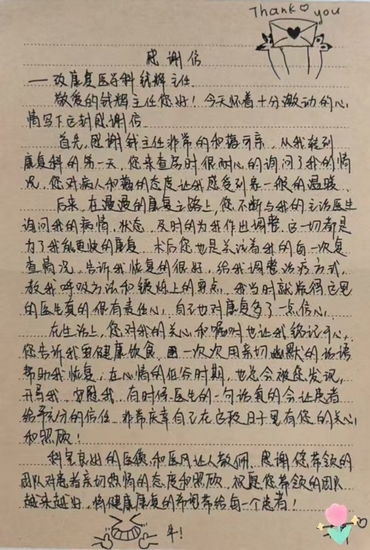 Thank you
感谢信
——致康复医学科钱辉主任
敬爱的钱辉主任您好！今天怀着十分激动的心
情写下这封感谢信
首先，感谢钱主任非常的和蔼可亲，从我转到
康复科的第一天，您来查房时很耐心的询问了我的情
况，您对病人和蔼的态度让我感受到春一般的温暖
后来，在漫漫的康复之路上，您不断与我的主治医生
询问我的病情，状态，及时的为我作出调整，这一切都是
为了我能更快的康复，术后您也是关注着我的每一次复
查情况，告诉我恢复的很好，给我调整治疗方式，
教我呼吸方法和锻炼上的要点，我当时就觉得这里
的医生真的很有责任心，自己也对康复多了一点信心，
在生活上，您对我的关心和嘱咐也让我铭记于心，
您告诉我要健康饮食，一次次用亲切幽默的话语
帮助我恢复；在心情的低谷时期，也总会被您发现，
开导我，安慰我，有时候医生的一句话真的会让患者
给予充分的信任，非常庆幸自己在这段日子里有您的关心
和照顾！
科室良好的医德和医风让人敬佩，感谢您带领的
团队对患者亲切热情的态度和照顾，祝愿您带领的团队
越来越好，将健康康复的希望带给每一个患者！
牛！